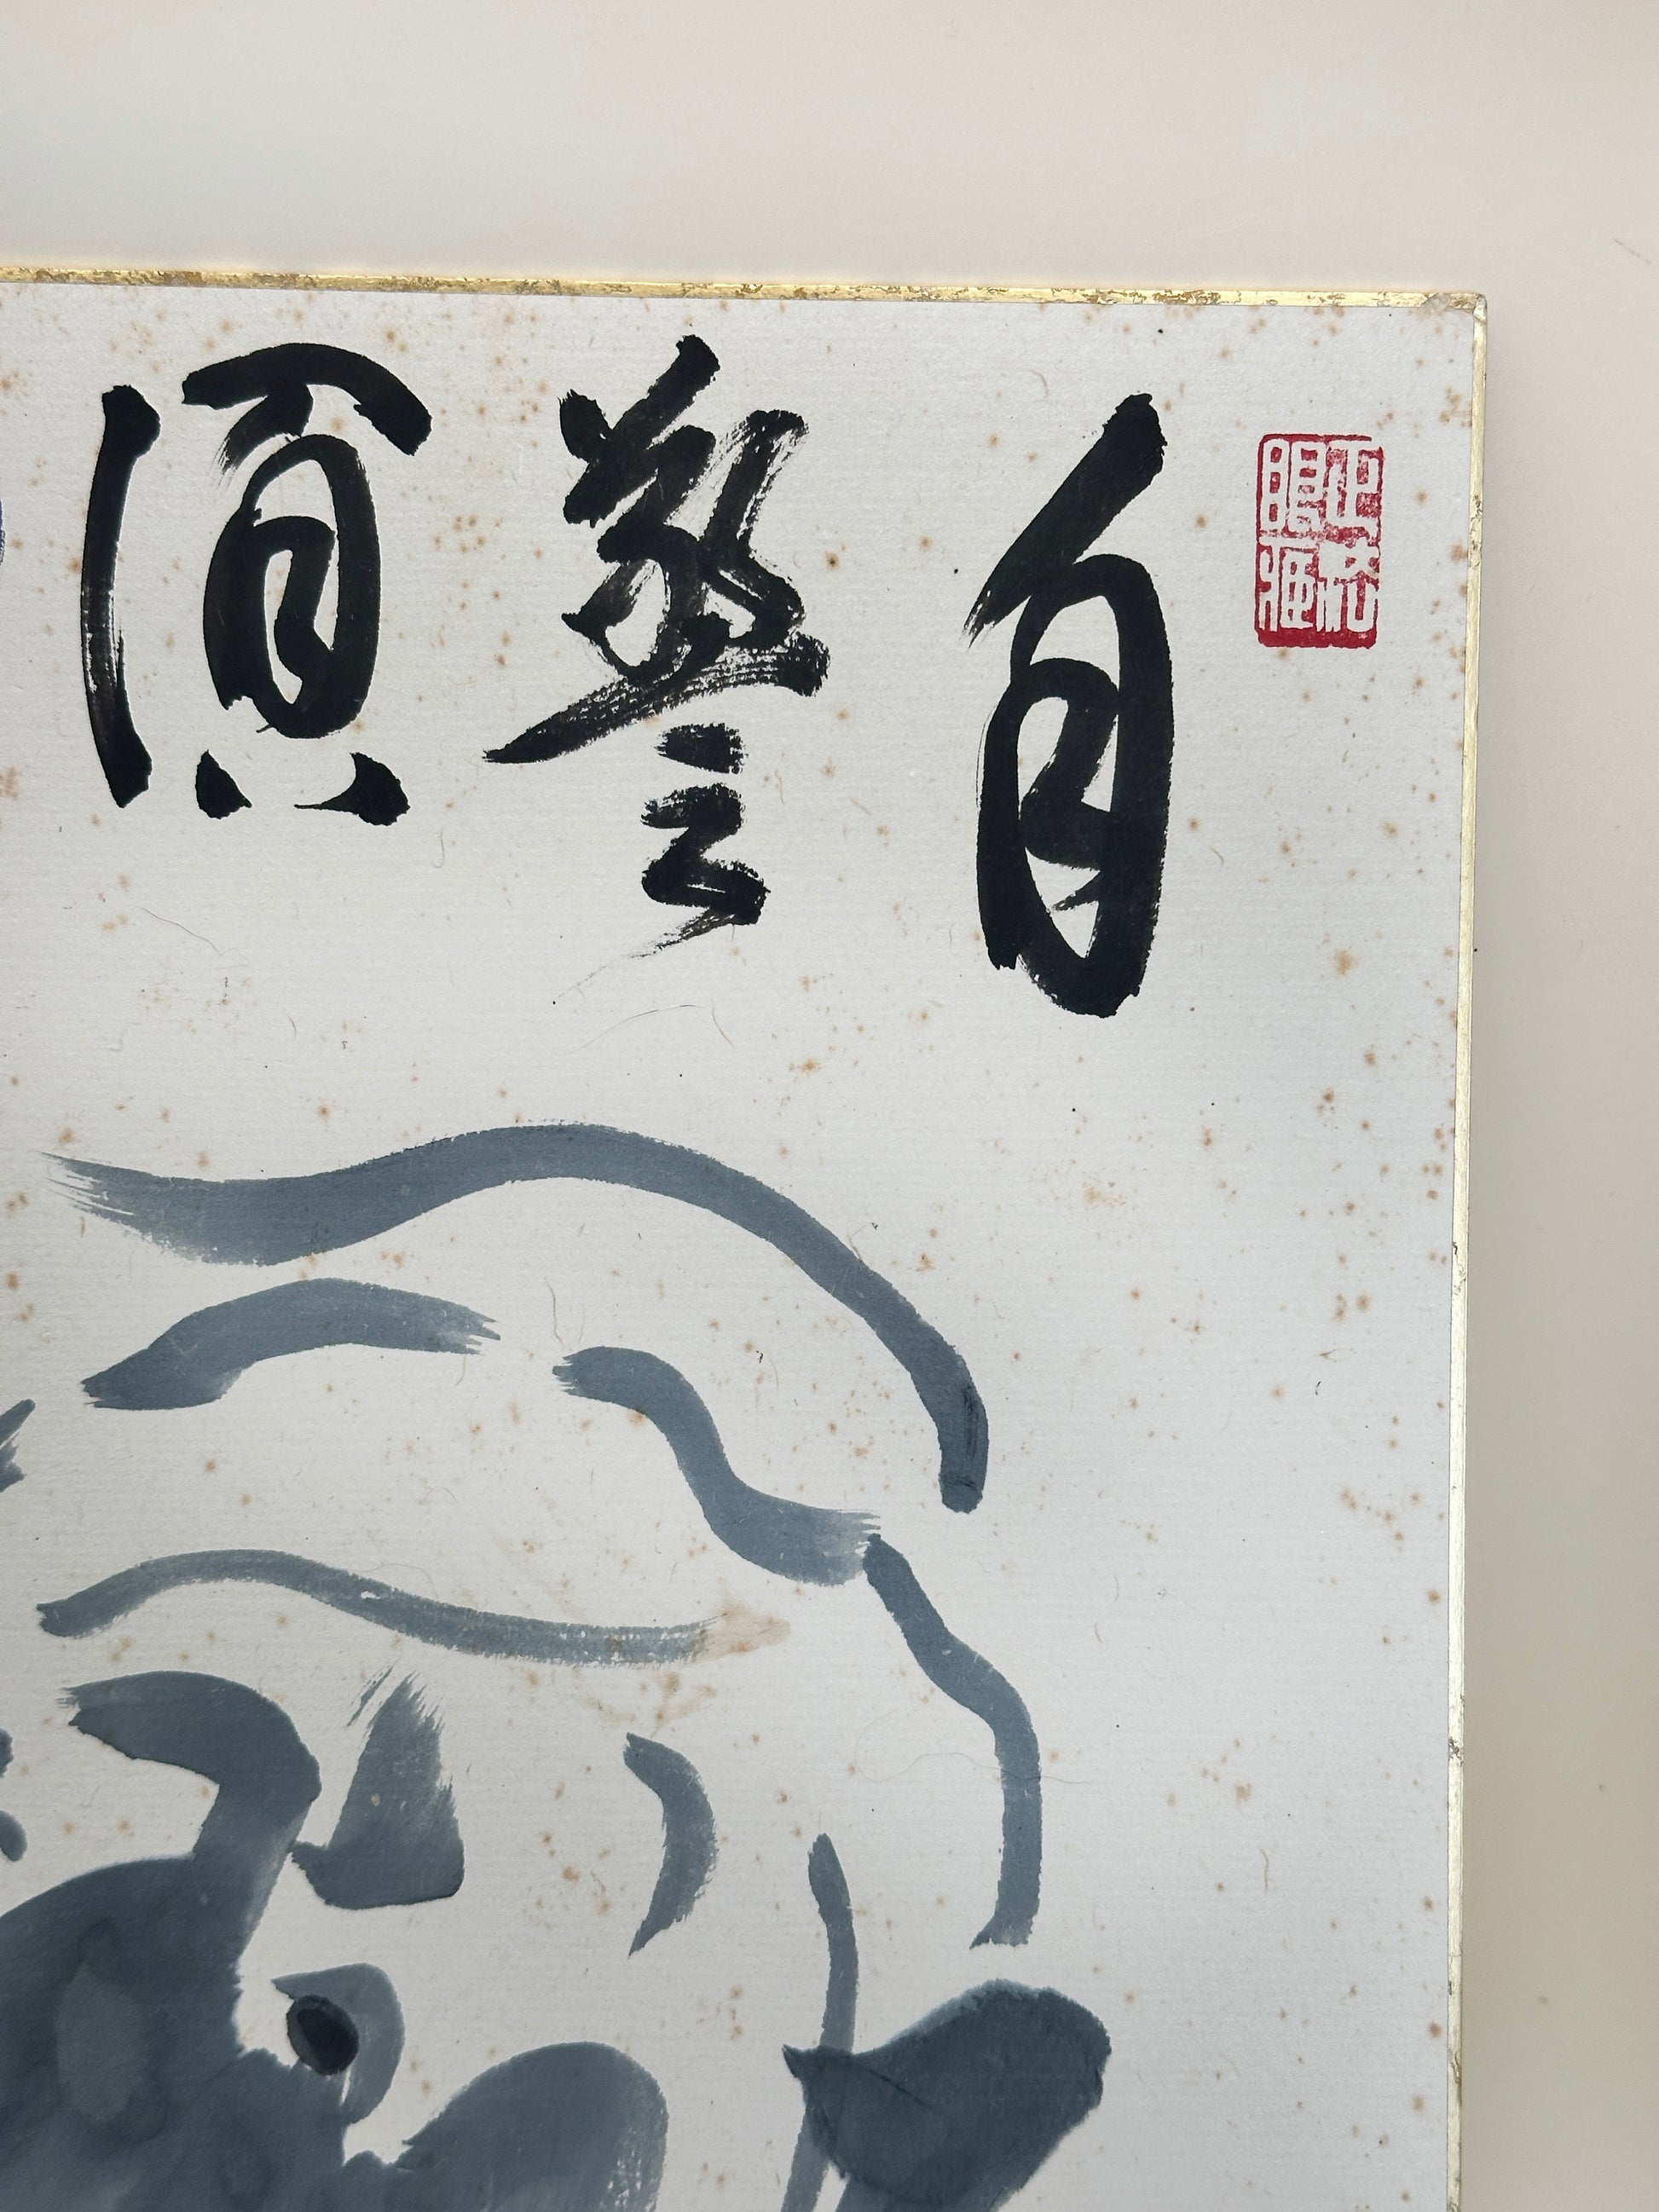 正法眼蔵
自警須